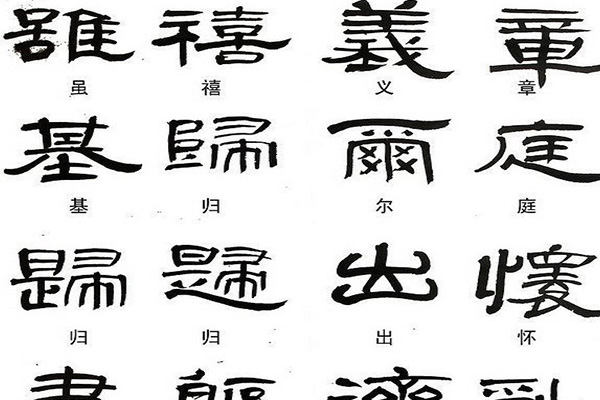 雖 禧 義 章
虽 禧 义 章
基 歸 爾 庭
基 归 尔 庭
歸 歸 出 懷
归 归 出 怀